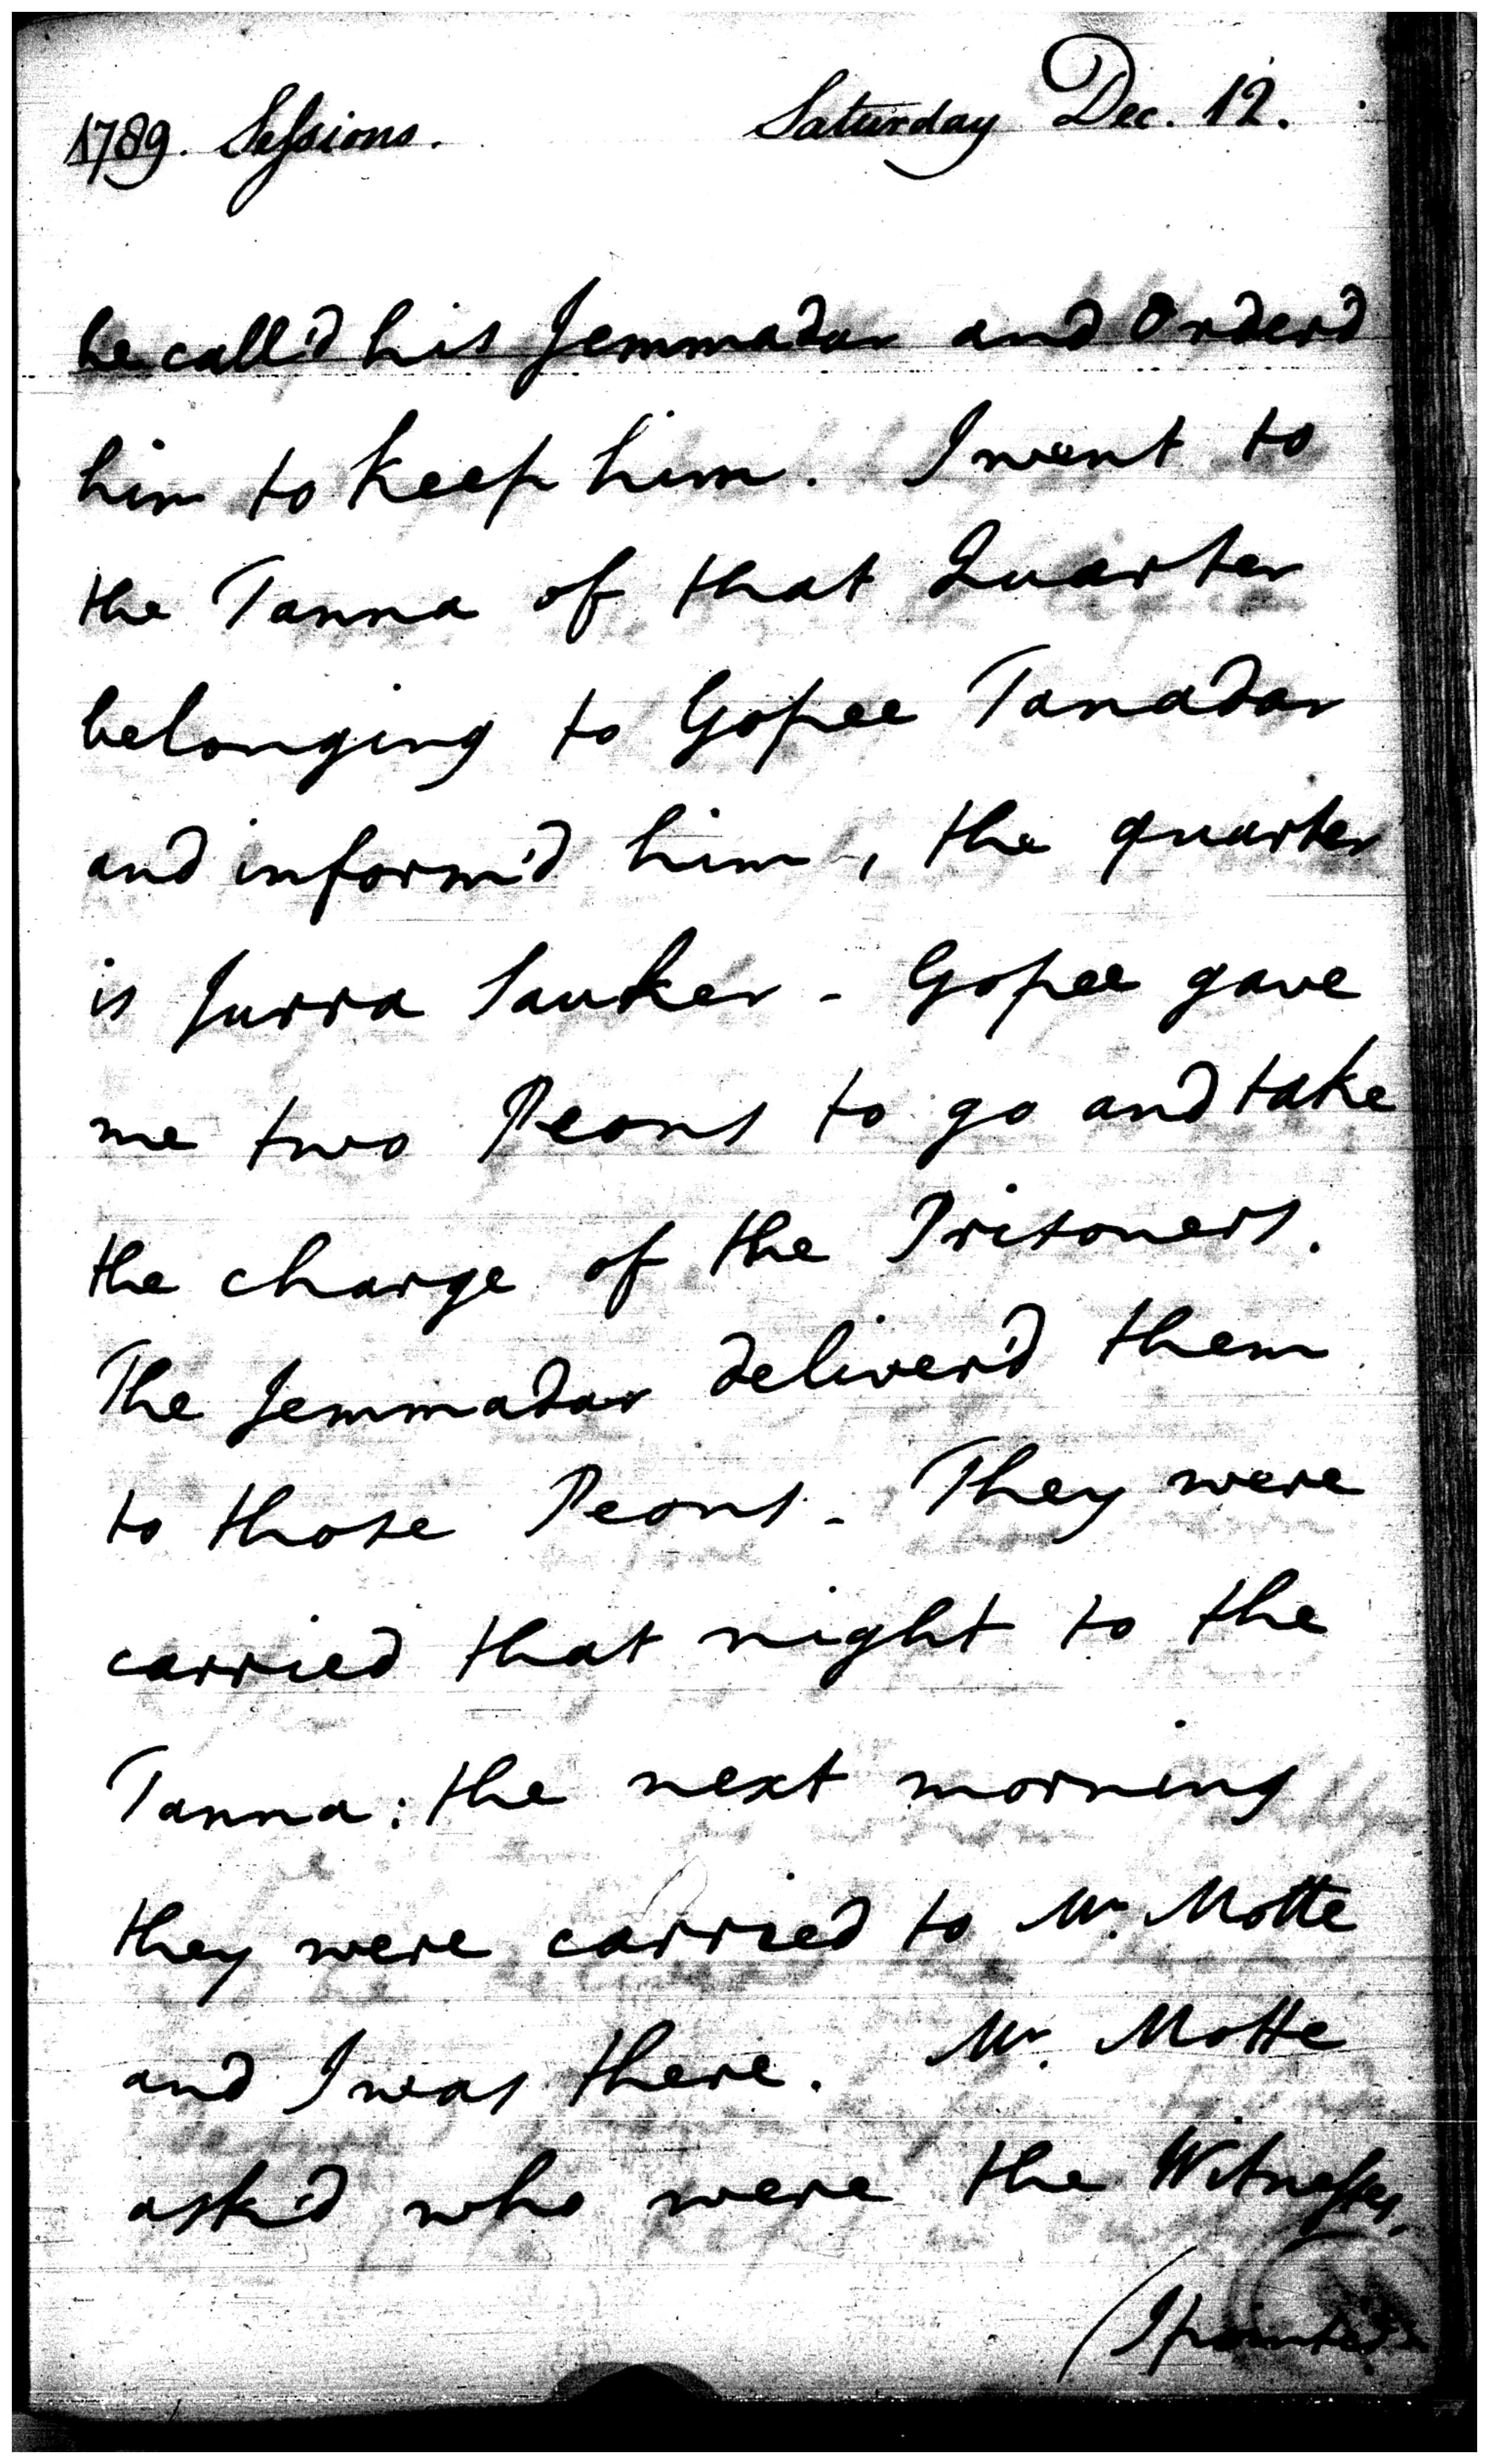 1789. Sessions. Saturday Dec. 12.
he call'd his Jemmadar and Order'd
him to keep him. I went to
the Tanna of that Quarter
belonging to Gopee Tanadar
and inform'd him, the quarter
is Jurra Sanker - Gopee gave
me two Peons to go and take
the charge of the Prisoners.
The Jemmadar deliver'd them
to those Peons - They were
carried that night to the
Tanna: the next morning
they were carried to Mr. Motte
and I was there. Mr. Motte
ask'd who were the Witnesses,
(I pointed